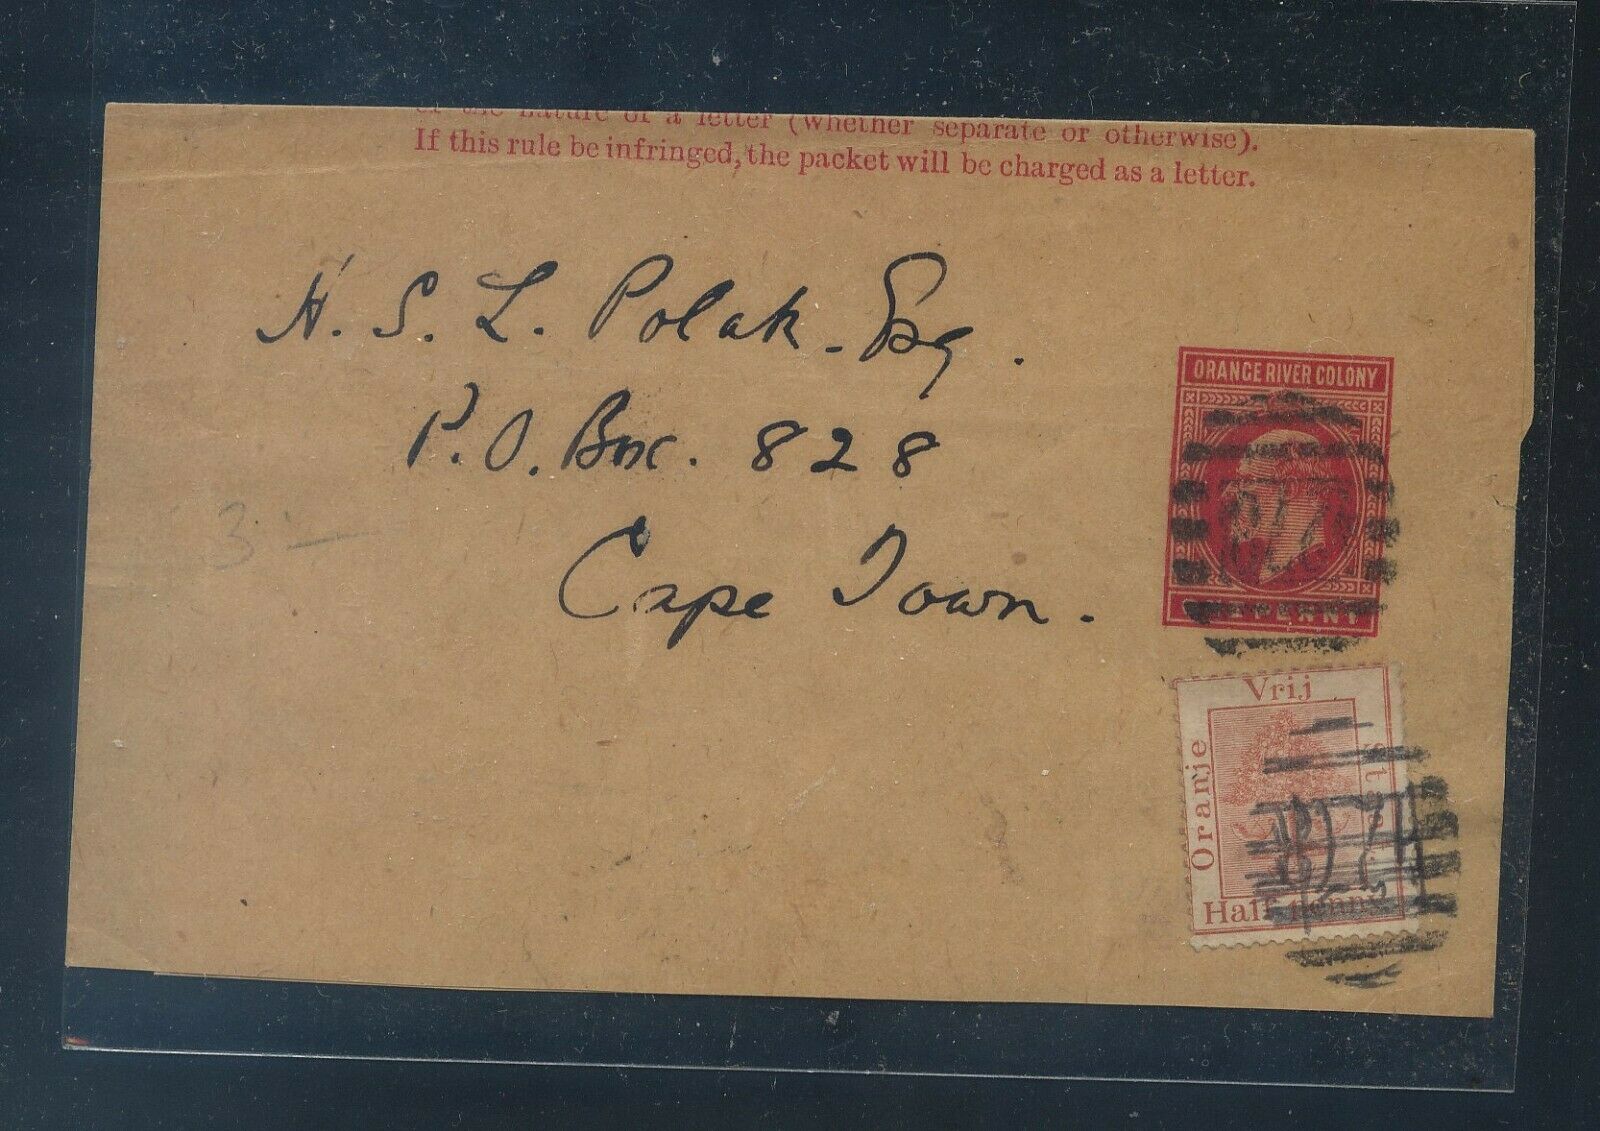 of the nature of a letter (whether separate or otherwise).
If this rule be infringed, the packet will be charged as a letter.
H. S. L. Polak. Esq.
P.O. Box. 828
Cape Town.
3
ORANGE RIVER COLONY
PENNY
Vrij
Oranje
Half penny